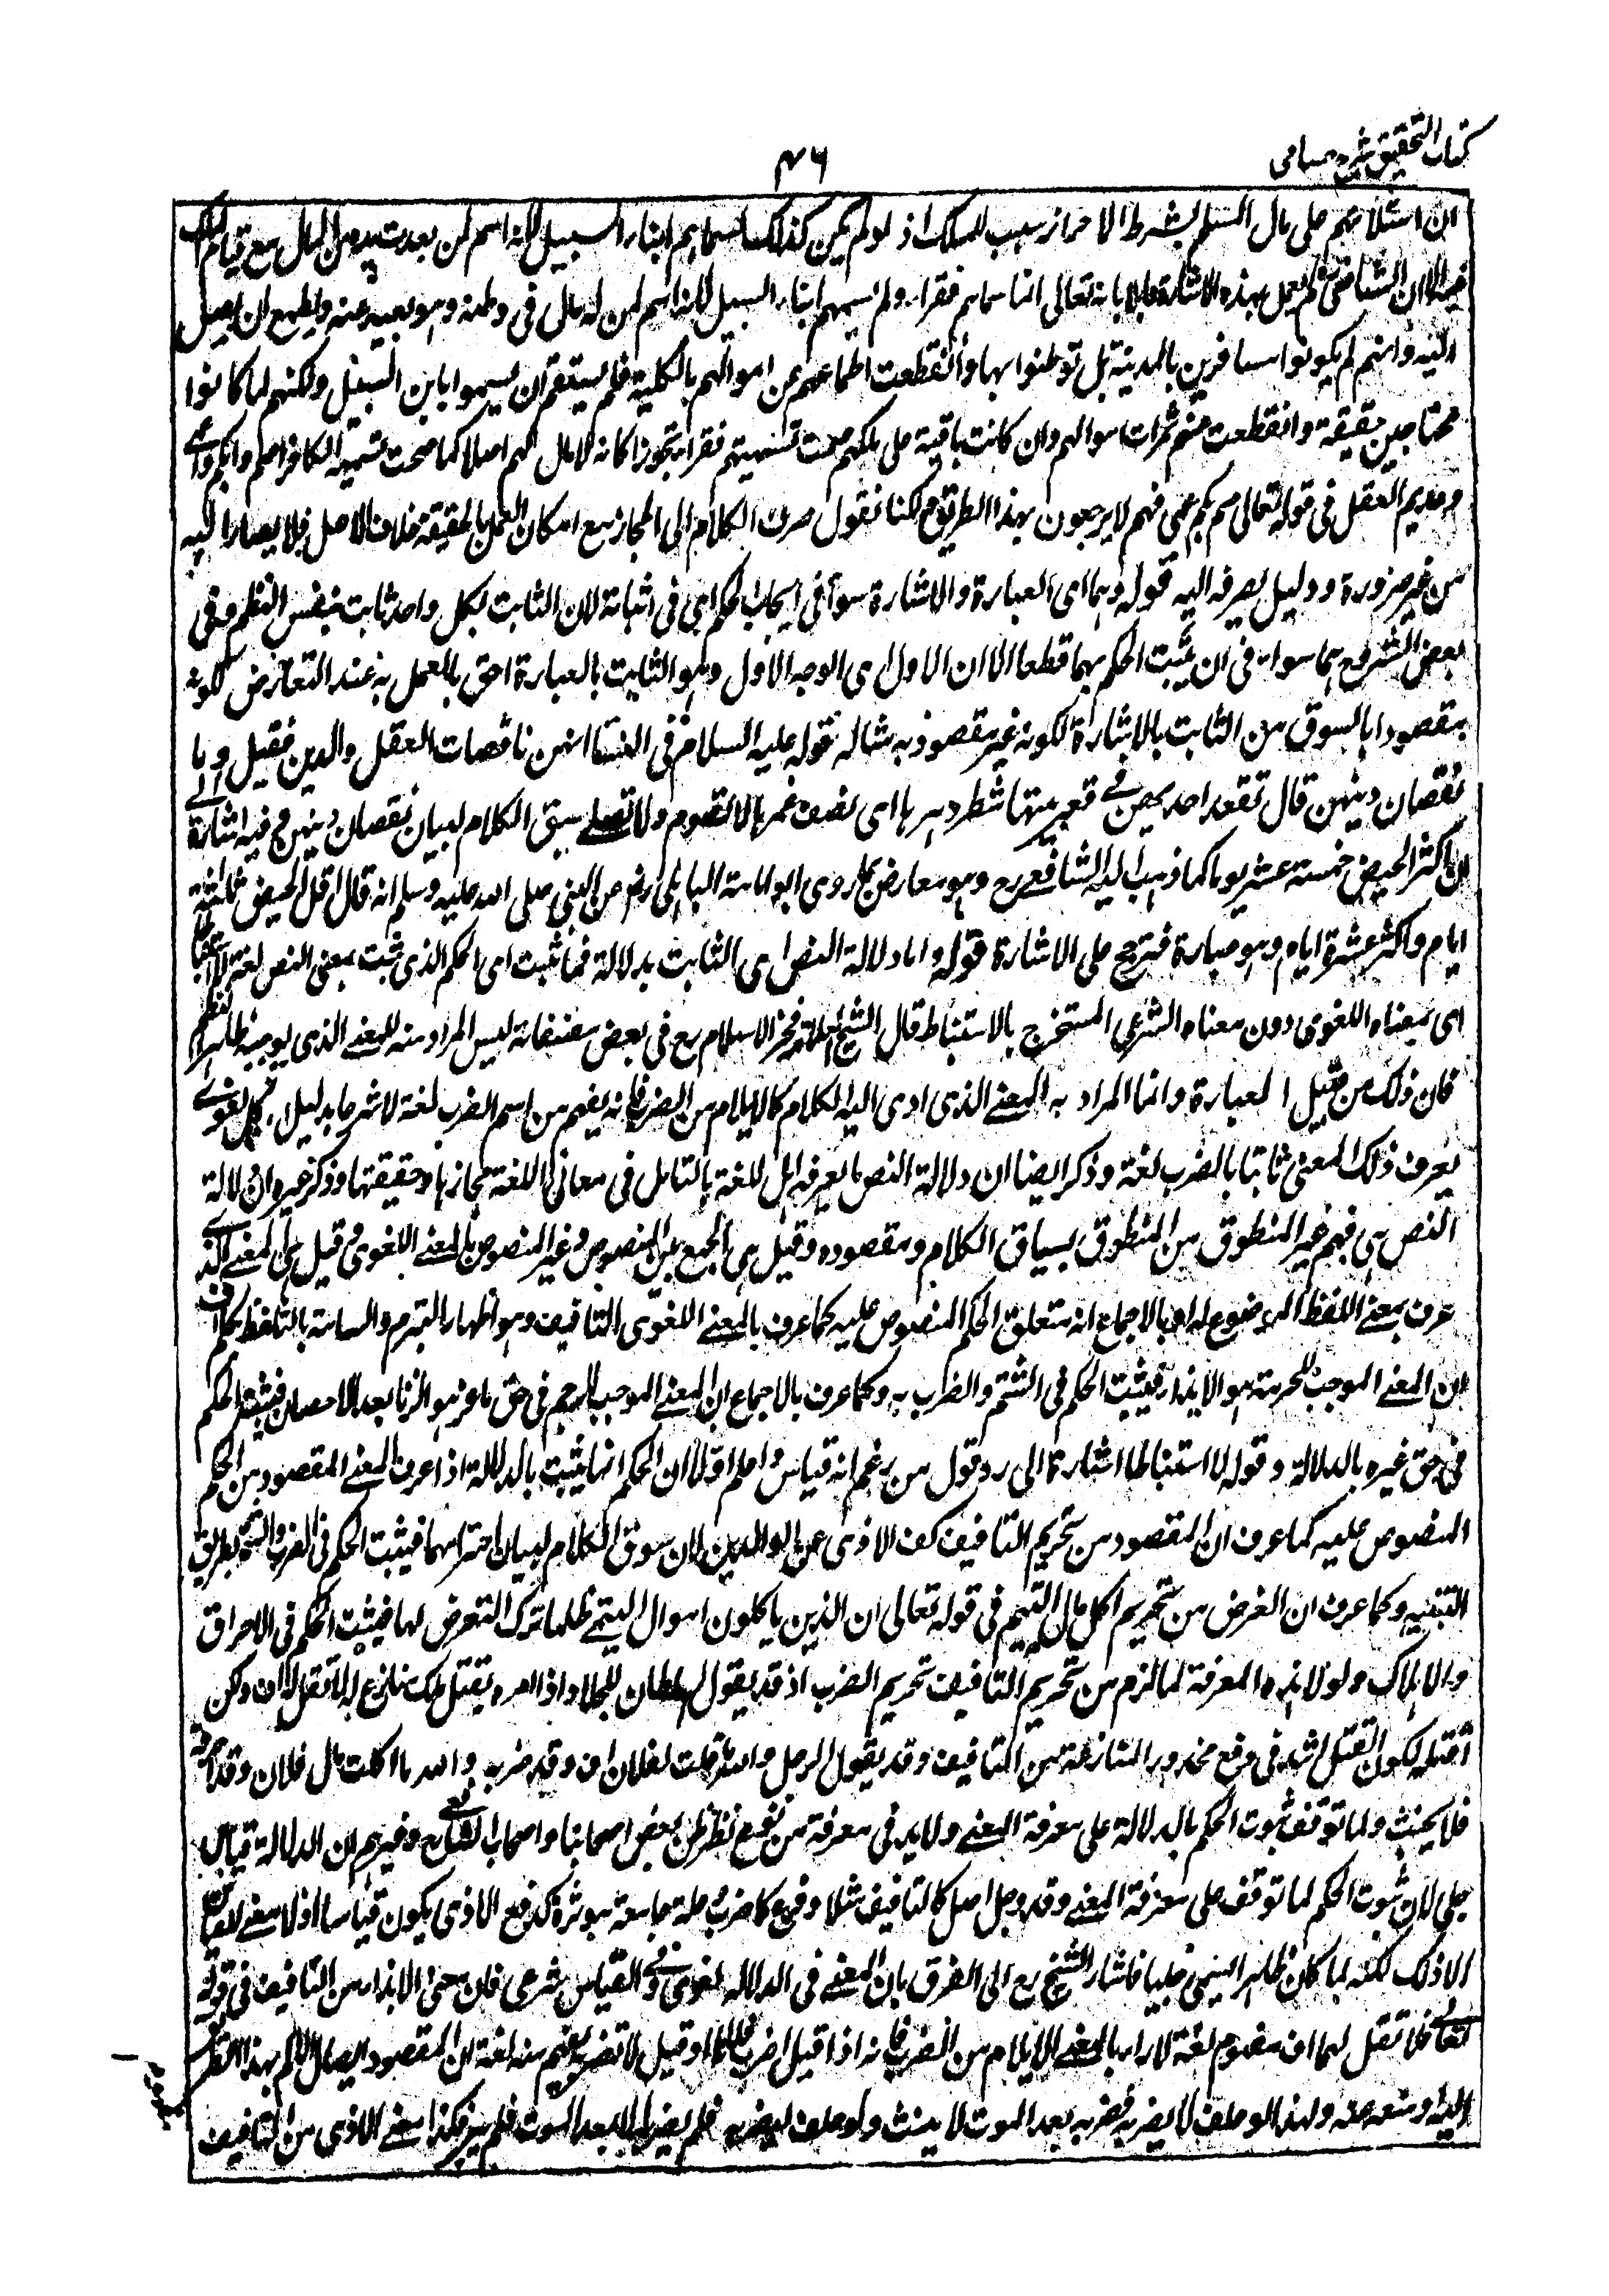 كتاب التحقيق شرح حسامى
٤٦
ان استيلائهم على مال المسلم بشرط الاحراز سبب للملك اذ لو لم يكن كذلك لسماهم ابناء السبيل لانه اسم لمن بعدت يده من المال مع قيام الملك
فيه الا ان الشافعى لم يعمل بهذه الاشارة قايلا بانه تعالى انما سماهم فقراء ولم يسمهم ابناء السبيل لانه اسم لمن له مال فى وطنه وهو بعيد عنه ويطمع ان يصل
اليه وانهم لم يكونوا مسافرين بالمدينة بل توطنوا بها وانقطعت اطماعهم عن اموالهم بالكلية فلم يستقم ان يسموا بابن السبيل ولكنهم لما كانوا
محتاجين حقيقة وانقطعت عنهم ثمرات اموالهم وان كانت باقية على ملكهم صحت تسميتهم فقراء تجوزا كانه لا مال لهم اصلا كما صحت تسمية الكافر اصم وابكم واعمى
وعديم العقل فى قوله تعالى صم بكم عمى فهم لا يرجعون بهذا الطريق لكنا نقول صرف الكلام الى المجاز مع امكان العمل بالحقيقة خلاف الاصل فلا يصار اليه
من غير ضرورة ودليل يصرفه اليه قوله وهما اى العبارة والاشارة سواء فى ايجاب الحكم اى فى اثباته لان الثابت بكل واحد ثابت بنفس النظم وفى
بعض الشروح هما سواء فى ان يثبت الحكم بهما قطعا الا ان الاول اى الوجه الاول وهو الثابت بالعبارة احق بالعمل به عند التعارض لكونه
مقصودا بالسوق من الثابت بالاشارة لكونه غير مقصود به مثاله قوله عليه السلام فى النساء انهن ناقصات العقل والدين فقيل وما
نقصان دينهن قال تقعد احديهن فى قعر بيتها شطر دهرها اى نصف عمرها لا تصوم ولا تصلى سيق الكلام لبيان نقصان دينهن وفيه اشارة الى
ان اكثر الحيض خمسة عشر يوما كما ذهب اليه الشافعى رح وهو معارض بما روى ابو امامة الباهلى رض عن النبى صلى الله عليه وسلم انه قال اقل الحيض ثلثة
ايام واكثره عشرة ايام وهو عبارة فترجح على الاشارة قوله واما دلالة النص اى الثابت بدلالة فما ثبت اى الحكم الذى ثبت بمعنى النص لغة لا استنباطا
اى بمعناه اللغوى دون معناه الشرعى المستخرج بالاستنباط قال الشيخ العلامة فخر الاسلام رح فى بعض مصنفاته ليس المراد منه المعنى الذى يوجبه ظاهر النظم
فان ذلك من قبيل العبارة وانما المراد به المعنى الذى ادى اليه الكلام كالايلام من الضرب فانه يفهم من اسم الضرب لغة لا شرعا بدليل ان كل لغوى
يعرف ذلك المعنى ثابتا بالضرب لغة وذكر ايضا ان دلالة النص ما يعرفه اهل اللغة بالتامل فى معانى اللغة مجازها وحقيقتها وذكر غيره ان دلالة
النص هى فهم غير المنطوق من المنطوق بسياق الكلام ومقصوده وقيل هى الجمع بين المنصوص وغير المنصوص بالمعنى اللغوى وقيل هى المعنى الذى
عرف بمعنى اللفظ الموضوع له او بالاجماع انه متعلق الحكم المنصوص عليه كما عرف بالمعنى اللغوى التافيف وهو اظهار التبرم والسآمة بالتلفظ بكلمة اف
ان المعنى الموجب للحرمة هو الايذاء فيثبت الحكم فى الشتم والضرب به وكما عرف بالاجماع ان المعنى الموجب للرجم فى حق ماعز هو الزنا بعد الاحصان فيثبت الحكم
فى حق غيره بالدلالة وقوله لا استنباطا اشارة الى رد قول من زعم انه قياس واعلم اولا ان الحكم انما يثبت بالدلالة اذا عرف المعنى المقصود من الحكم
المنصوص عليه كما عرف ان المقصود من تحريم التافيف كف الاذى عن الوالدين لان سوق الكلام لبيان احترامهما فيثبت الحكم فى الضرب والشتم بطريق
التنبيه وكما عرف ان الغرض من تحريم اكل مال اليتيم فى قوله تعالى ان الذين ياكلون اموال اليتمى ظلما ترك التعرض لها فيثبت الحكم فى الاحراق
والاهلاك ولولا هذه المعرفة لما لزم من تحريم التافيف تحريم الضرب اذ قد يقول السلطان للجلاد اذا امره بقتل ملك منازع له لا تقل له اف ولكن
اقتله لكون القتل اشد فى دفع محذور المنازعة من التافيف وقد يقول الرجل والله ما قلت لفلان اف وقد ضربه والله ما اكلت مال فلان وقد احرقه
فلا يحنث ولما توقف ثبوت الحكم بالدلالة على معرفة المعنى ولا بد فى معرفته من نوع نظر ظن بعض اصحابنا واصحاب الشافعى وغيرهم ان الدلالة قياس
جلى لان ثبوت الحكم لما توقف على معرفة المعنى وقد وجد اصل كالتافيف مثلا وفرع كالضرب وعلة جامعة موثرة كدفع الاذى يكون قياسا اذ لا معنى للقياس
الا ذلك لكنه لما كان ظاهرا سمى جليا فاشار الشيخ رح الى الفرق بان المعنى فى الدلالة لغوى وفى القياس شرعى فان معنى الايذاء من التافيف فى قوله
تعالى فلا تقل لهما اف مفهوم لغة لا رايا بالمعنى الايلام من الضرب فانه اذا قيل اضرب فلانا او قيل لا تضرب يفهم منه لغة ان المقصود ايصال الالم بهذا الفعل
اليه او منعه عنه ولهذا لو حلف لا يضربه فضربه بعد الموت لا يحنث ولو حلف ليضربه فلم يضربه الا بعد الموت فلم يبر فكذا معنى الاذى من التافيف